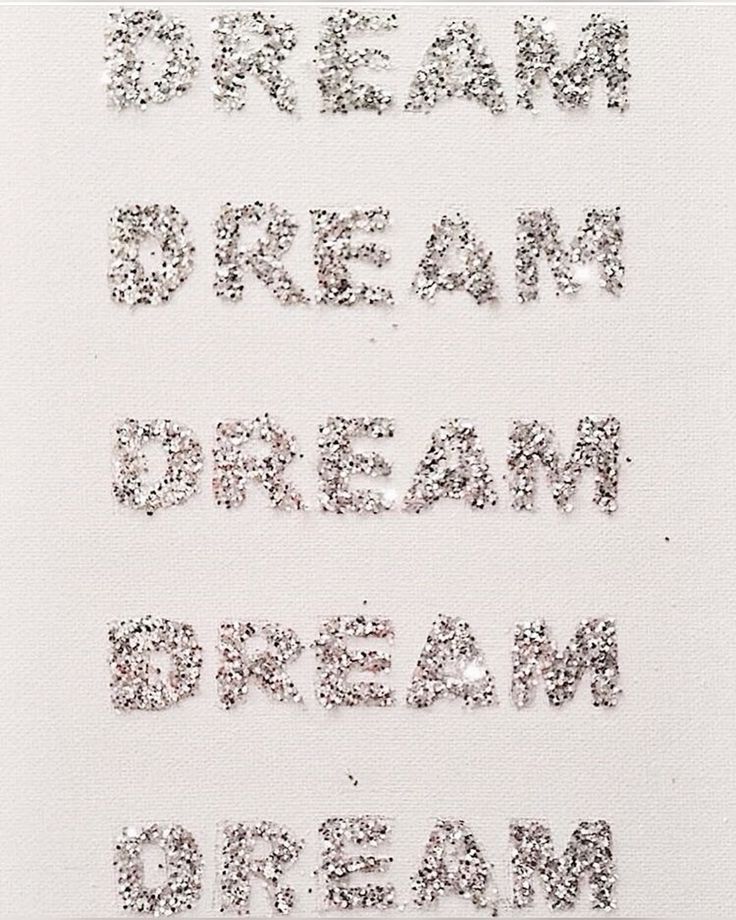 DREAM
DREAM
DREAM
DREAM
DREAM